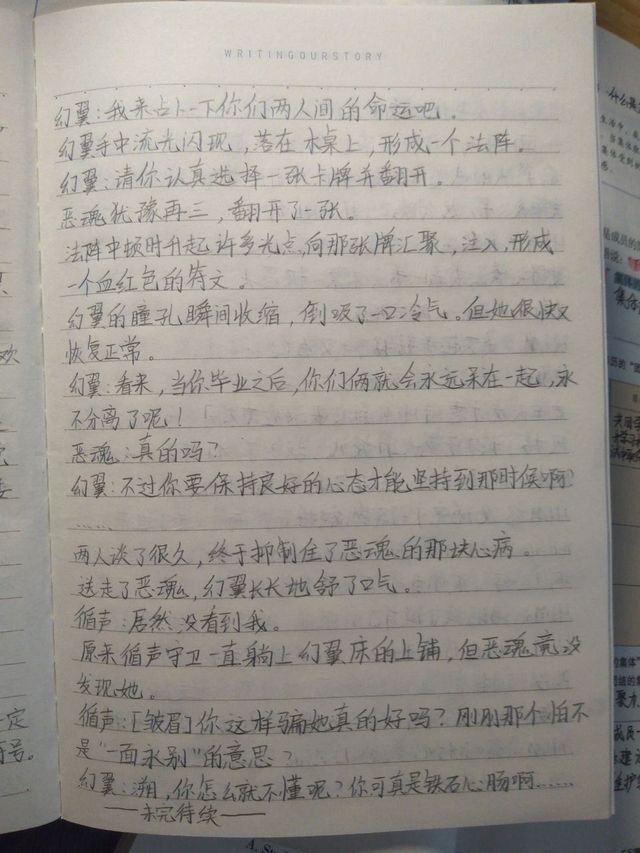 WRITINGOURSTORY
幻翼：我来占卜一下你们两人间的命运吧。
幻翼手中流光闪现，落在木桌上，形成一个法阵。
幻翼：请你认真选择一张卡牌并翻开。
恶魂犹豫再三，翻开了一张。
法阵中顿时升起许多光点，向那张牌汇聚，注入，形成
一个血红色的符文。
幻翼的瞳孔瞬间收缩，倒吸了一口冷气。但她很快又
恢复正常。
幻翼：看来，当你毕业之后，你们俩就会永远呆在一起，永
不分离了呢！
恶魂：真的吗？
幻翼：不过你要保持良好的心态才能坚持到那时候啊？
……
两人谈了很久，终于抑制住了恶魂的那块心病。
送走了恶魂，幻翼长长地舒了口气。
循声：居然没看到我。
原来循声守卫一直躺上幻翼床的上铺，但恶魂竟没
发现她。
循声：[皱眉]你这样骗她真的好吗？刚刚那个怕不
是“一面永别”的意思？
幻翼：溯，你怎么就不懂呢？你可真是铁石心肠啊……
——未完待续——
什么是
生活中，